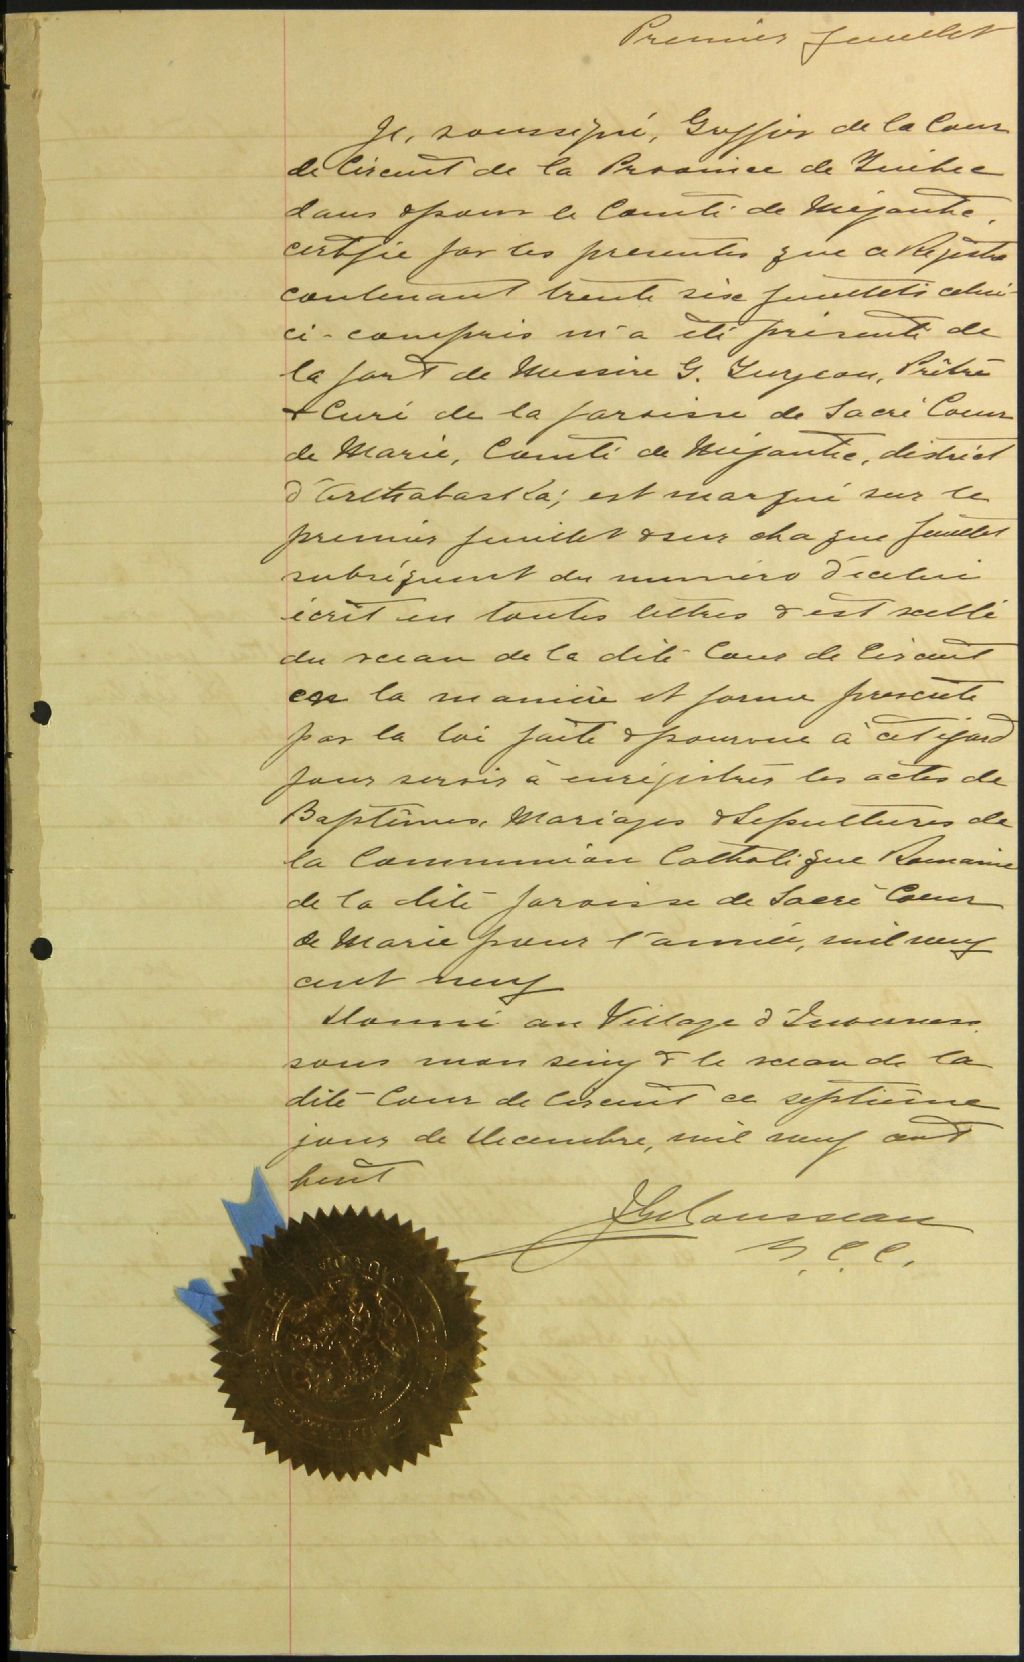 Premier feuillet
Je, soussigné, Greffier de la Cour
de Circuit de la Province de Québec
dans & pour le Comté de Mégantic,
certifie par les presentes que ce Régistre
contenant trente six feuillets celui-
ci-compris m'a été présenté de
la part de Messire G. Turgeon, Prêtre
& Curé de la paroisse de Sacré Coeur
de Marie, Comté de Mégantic, district
d'Arthabaska; est marqué sur le
premier feuillet & sur chaque feuillet
subséquent du numéro d'icelui
écrit en toutes lettres & est scellé
du sceau de la dite Cour de Circuit
en la manière et forme prescrite
par la loi faite & pourvue à cet égard
pour servir à enrégistrer les actes de
Baptêmes, Mariages & Sépultures de
la Communion Catholique Romaine
de la dite paroisse de Sacré Coeur
de Marie pour l'année, mil neuf
cent neuf
Donné au Village d'Inverness
sous mon seing & le sceau de la
dite Cour de Circuit ce septième
jour de Decembre, mil neuf cent
huit
Rousseau
G. C. C.